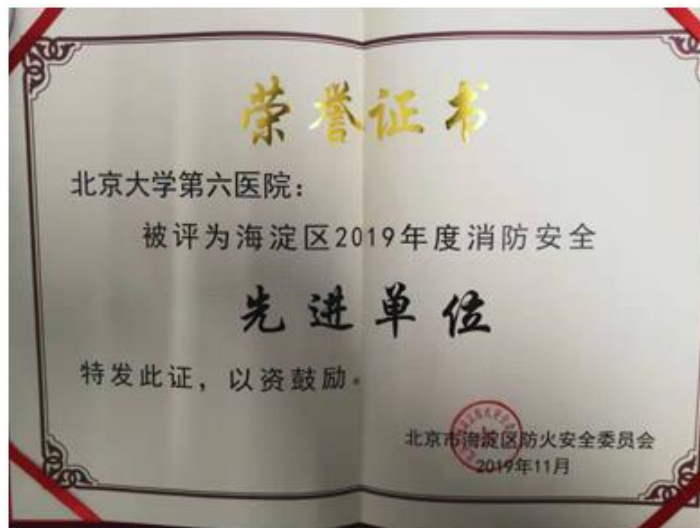 荣誉证书
北京大学第六医院：
被评为海淀区2019年度消防安全
先进单位
特发此证，以资鼓励。
北京市海淀区防火安全委员会
2019年11月